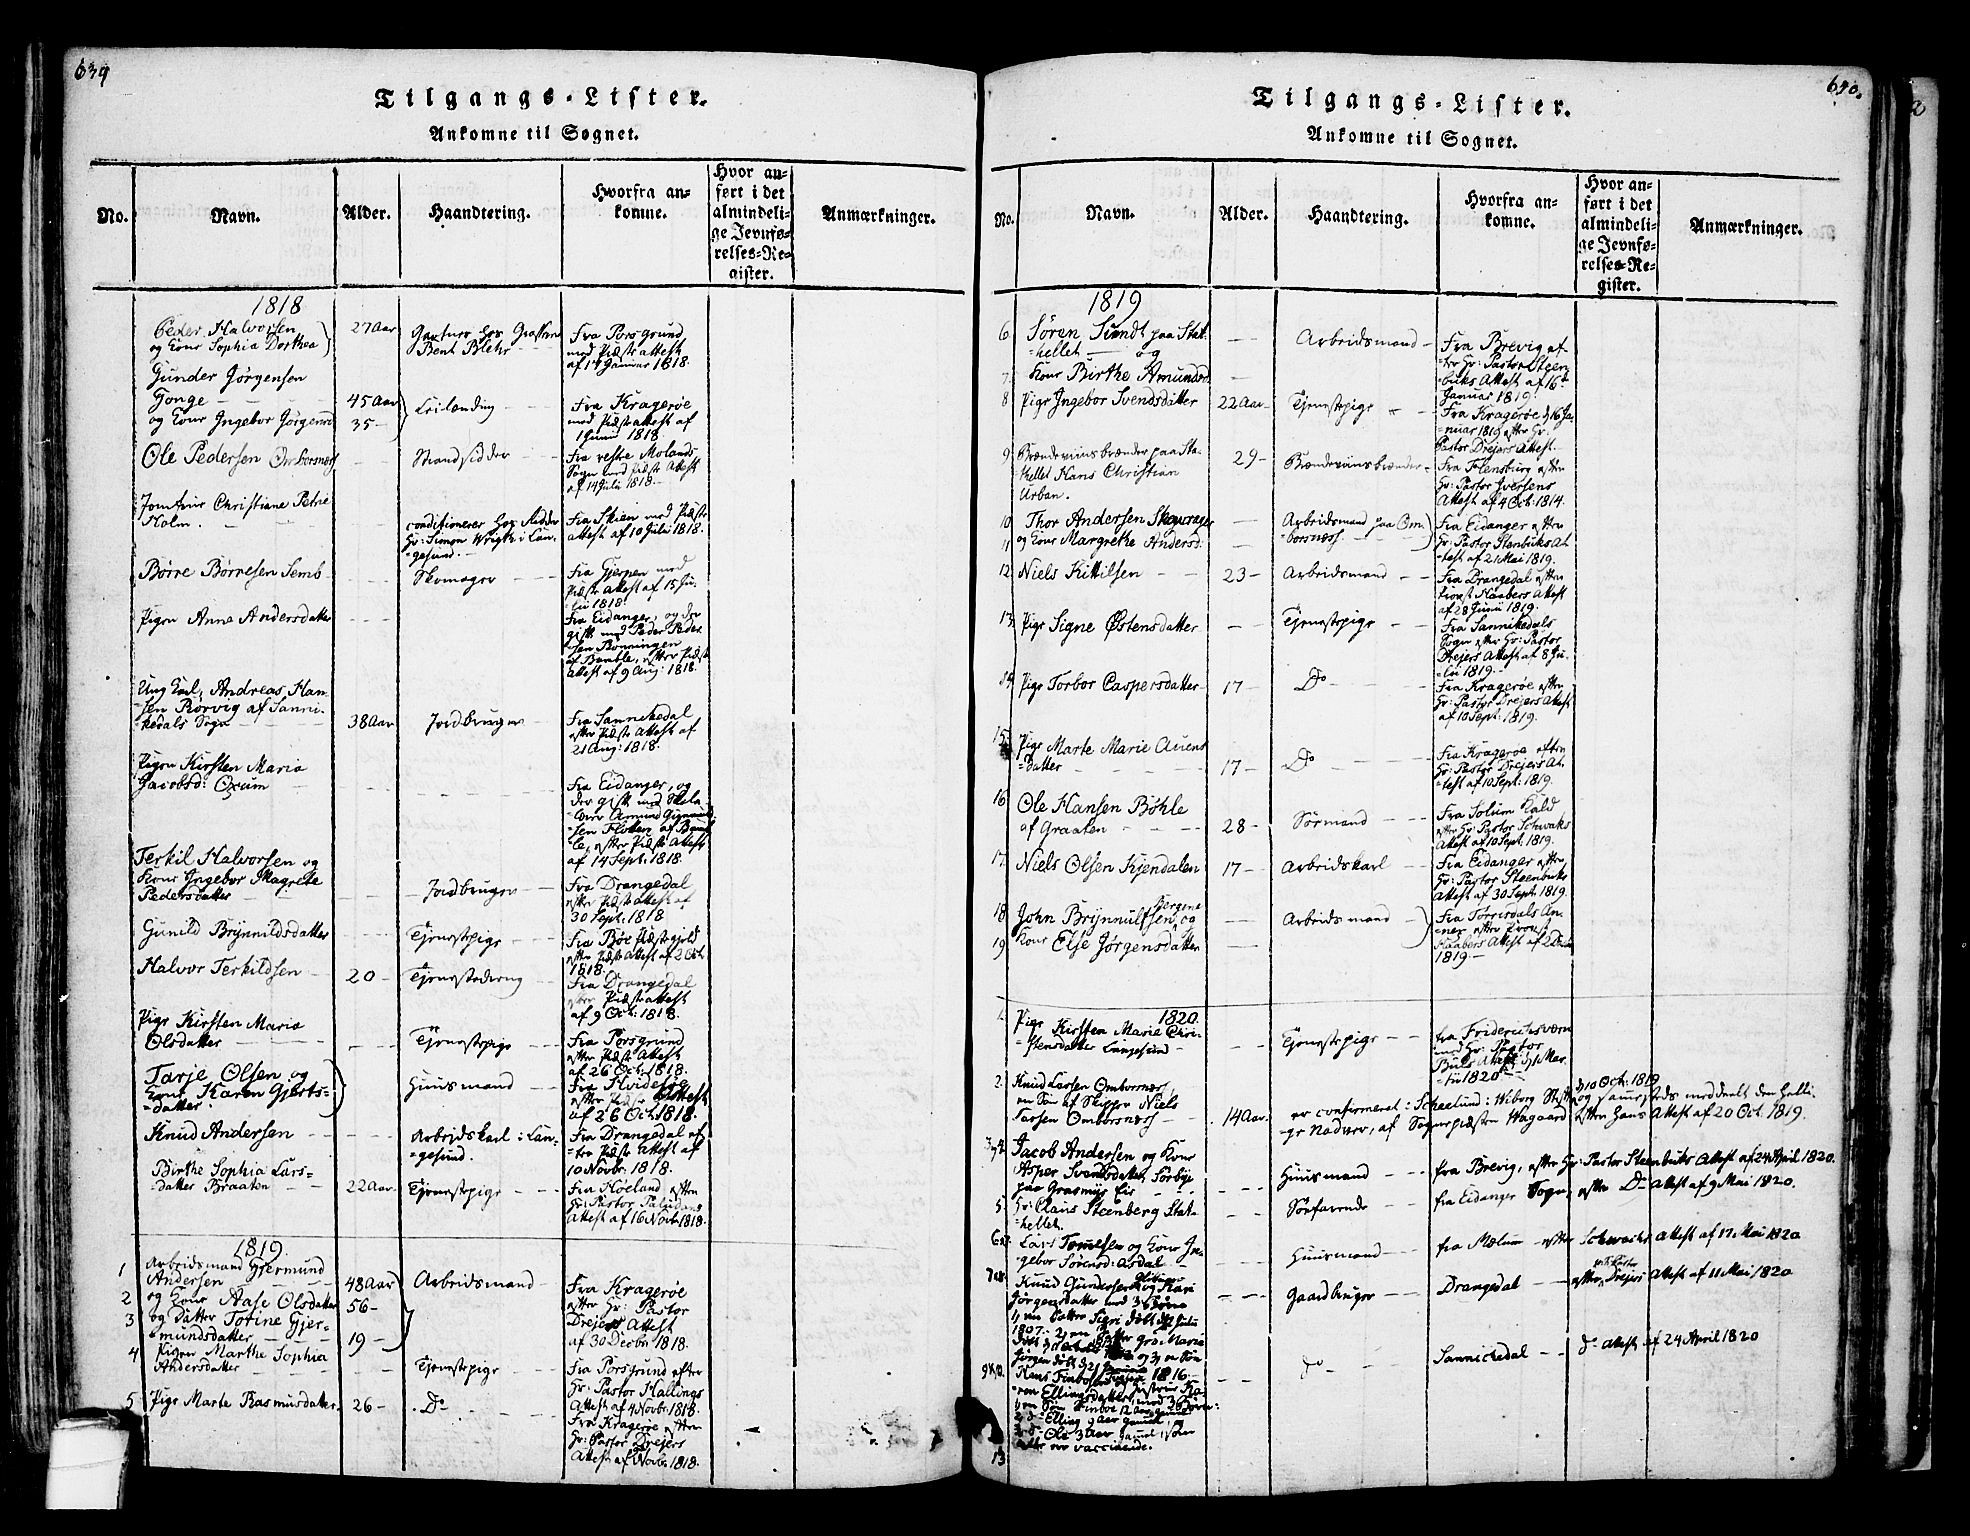 639
Tilgangs-Lister.
Ankomne til Sognet.
No.
Navn.
Alder.
Haandtering.
Hvorfra an-
komne.
Hvor an-
ført i det
almindeli-
ge Jevnfø-
relses-Re-
gister.
Anmærkninger.
1818
Peder Halvorsen
og Kone Sophia Dorthea
27 Aar
Gartner hos
Bent Blehr
Fra Porsgrund
med Præste attest
af 14 Januar 1818.
Gunder Jørgensen
Gonge
og Kone Ingebor Jørgensd
45 Aar
35
Leilending
Fra Kragerøe
med Præste attest af
1 Junii 1818.
Ole Pedersen Omborsnæs
Strandsidder
Fra vestre Molands
Sogn med Præste Attest
af 14 Julii 1818.
Jomfrue Christiane Petre
Holm.
conditionerer hos Ridder
Hr: Simon Wright i Lan-
gesund.
Fra Skien med Præste
attest af 10 Julii 1818.
Børre Børresen Semb
Skomager
Fra Gjerpen med
Præste Attest af 15 Ju-
lii 1818.
Pigen Anne Andersdatter
Fra Eidanger, og der
gift med Peder Peder
sen Rønningen
af Bamble, efter Præste
Attest af 9 Aug: 1818.
Ung Karl, Andreas Han-
sen Rørvig af Sanni-
kedals Sogn
38 Aar
Jordbruger
Fra Sannikedal
efter Præste Attest af
21 Aug: 1818.
Pigen Kirsten Maria
Jacobsd: Oxum
Fra Eidanger, og
der gift med Skole-
lærer Amund Gjermund-
sen Flotten af Bamb-
le, efter Præste Attest
af 14 Sept: 1818.
Terkil Halvorsen og
Kone Ingebor Magrete
Pedersdatter
Jordbruger
Fra Drangedal
efter Præste Attest af
30 Sept. 1818
Gunild Brynnildsdatter
Tjenestepige
Fra Bøe Præstegjeld
efter Præste Attest af 2 Oct
1818.
Halvor Terkildsen
20
Tjenestedreng
Fra Drangedal
efter Præste Attest
af 9 Oct: 1818.
Pige Kirsten Maria
Olsdatter
Tjenestepige
Fra Porsgrund
efter Præste Attest
af 26 Oct: 1818.
Tarje Olsen og
Kone Karen Gjerts-
datter.
Huusmand
Fra Hvidesøe
efter Præste Attest
af 26 Oct: 1818.
Knud Andersen
Arbeidskarl i Lan-
gesund.
Fra Drangedal ef-
ter Præste Attest af
10 Novbr: 1818.
Birthe Sophia Lars-
datter Braaten
22 Aar
Tjenestepige
Fra Høeland, efter
Hr: Pastor
Attest af 16 Novbr 1818.
1819.
1
Arbeidsmand Gjermund
Andersen
48 Aar
Arbeidsmand
2
og Kone Aase Olsdatter
56
3
og Datter Torine Gjer-
mundsdatter
19
Fra Kragerøe
efter Hr: Pastor
Drejers Attest
af 30 Decbr: 1818.
4
Pigen Marthe Sophia
Andersdatter
Tjenestepige
Fra Porsgrund efter
Hr: Pastor Hallings
Attest af 4 Novbr: 1818.
5
Pige Marte Rasmusdatter
26
Do
Fra Kragerøe efter
Hr: Pastor Drejers
Attest af Novbr: 1818.
640.
Tilgangs-Lister.
Ankomne til Sognet.
No.
Navn.
Alder.
Haandtering.
Hvorfra an-
komne.
Hvor an-
ført i det
almindeli-
ge Jevnfø-
relses-Re-
gister.
Anmærkninger.
1819
6
Søren Sundt paa Stat-
hellet og
Arbeidsmand
7
Kone Birthe Amundsd
Fra Brevig ef-
ter Hr: Pastor Steen
buks Attest af 16de
Januar 1819.
8
Pige Ingebor Svendsdatter
22 Aar
Tjenestepige
Fra Kragerøe d 16 Ja-
nuar 1819 efter Hr.
Pastor Drejers Attest.
9
Brændeviinsbrænder paa Sta-
thellet Hans Christian
Urban.
29
Brændeviinsbrænder
Fra Flensburg efter
Hr: Pastor Iversens
Attest af 4 Oct: 1814.
10
Thor Andersen Skavrager
Arbeidsmand paa Om-
borsnæss
11
og Kone Margrethe Andersd.
Fra Eidanger efter
Hr: Pastor Stenbuks At-
test af 21 Mai 1819.
12
Niels Kittilsen
23
Arbeidsmand
Fra Drangedal efter
Provst Haabers Attest
af 28 Junii 1819.
13
Pige Signe Østensdatter
Tjenestepige
Fra Sannikedals
Sogn efter Hr: Pastor
Drejers Attest af 8 Ju-
lii 1819.
14
Pige Torbor Caspersdatter
17
Do
Fra Kragerøe efter
Hr: Pastor Drejers Attest
af 10 Sept: 1819.
15
Pige Marte Marie Auens
datter
17
Do
Fra Kragerøe efter
Hr: Pastor Drejers At-
test af 10 Sept: 1819.
16
Ole Hansen Bøhle
af Graaten
28
Sørmand
Fra Solum Kald
efter Hr: Pastor Schwaks
Attest af 10 Sept: 1819.
17
Niels Olsen Kjendalen
17
Arbeidskarl
Fra Eidanger efter
Hr: Pastor Steenbuks
Attest af 30 Sept: 1819.
18
John Brynnulfsen Bergene og
Arbeidsmand
19
Kone Else Jørgensdatter
Fra Tørrisdals An-
nex efter Provst
Haabers Attest af 2 Decbr
1819.
1820.
1.
Pige Kirsten Marie Chri-
stensdatter Langesund
Tjenestepige
fra Friderichsværn
med Hr: Pastor
Buls Attest d 1 Mar-
tii 1820
2.
Knud Larsen Omborsnæss,
en Søn af Skipper Niels
Larsen Omborsnæss
14 Aar.
er confirmeret i Scheelund i Wiborg Stift d 10 Oct: 1819 og samesteds meddeelt den Helli-
ge Nadvere, af Sognepræsten Wagaard efter hans Attest af 20 Oct. 1819.
3 & 4
Jacob Andersen og Kone
Asper Svendsdatter, Sørbye
paa Grasmyr Eie
Huusmand
fra Brevig, efter Hr: Pastor Steenbuks Attest af 24 April 1820.
5.
Hr: Claus Steenberg Stat-
hellet.
Sørfarende
fra Eidanger Sogn, efter Do Attest af 9 Mai 1820.
Lars Tomesen og Kone In-
gebor Sørensd: Aasdal
Huusmand
fra Mælum efter Schwachs Attest af 17 Mai 1820
Knud Gundersen og Kari
Jørgensdatter med 3 Børn
1, en Datter Sigri døbt Julii
1807. 2, en Datter Gro Maria
Jørgen døbt d 21 1816
Gaardbruger
Drangedal
efter Drejers Attest af 11 Mai 1820
Hans Finbosen
ren Ellingsdatter, med 3 Børn:
1 en Søn Finboe 12 Aar Gammel
2 do Elling 9 Aar Gamel,
3 do Ole 3 Aar Gamel, som
alle ere vaccinerede.
do
Sannichedal
do Attest af 24 April 1820
13